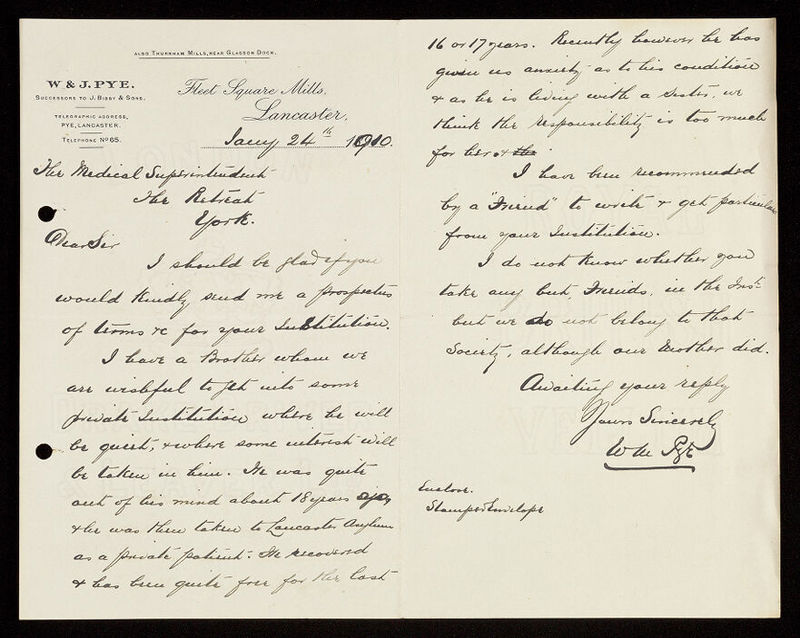 ALSO THURNHAM MILLS, NEAR GLASSON DOCK.
W & J. PYE.
SUCCESSORS TO J. BIBBY & SONS.
TELEGRAPHIC ADDRESS,
PYE, LANCASTER.
TELEPHONE No 65.
Fleet Square Mills,
Lancaster,
Jany 24th 1910.
The Medical Superintendent
The Retreat
York.
Dear Sir
I should be glad if you
would kindly send me a prospectus
of terms &c for your Institution.
I have a Brother whom we
are wishful to get into some
private Institution where he will
be quiet, & where some interest will
be taken in him. He was quite
out of his mind about 18 years ago,
& he was then taken to Lancaster Asylum
as a private patient. He recovered
& has been quite free for the last
16 or 17 years. Recently however he has
given us anxiety as to his condition
& as he is living with a sister, we
think the responsibility is too much
for her &
I have been recommended
by a "Friend" to write & get particulars
from your Institution.
I do not know whether you
take any but, Friends, in the Inst:
but we do not belong to that
Society, although our Mother did.
Awaiting your reply
Yours Sincerely
Wm Pye
Enclose.
Stamped Envelope